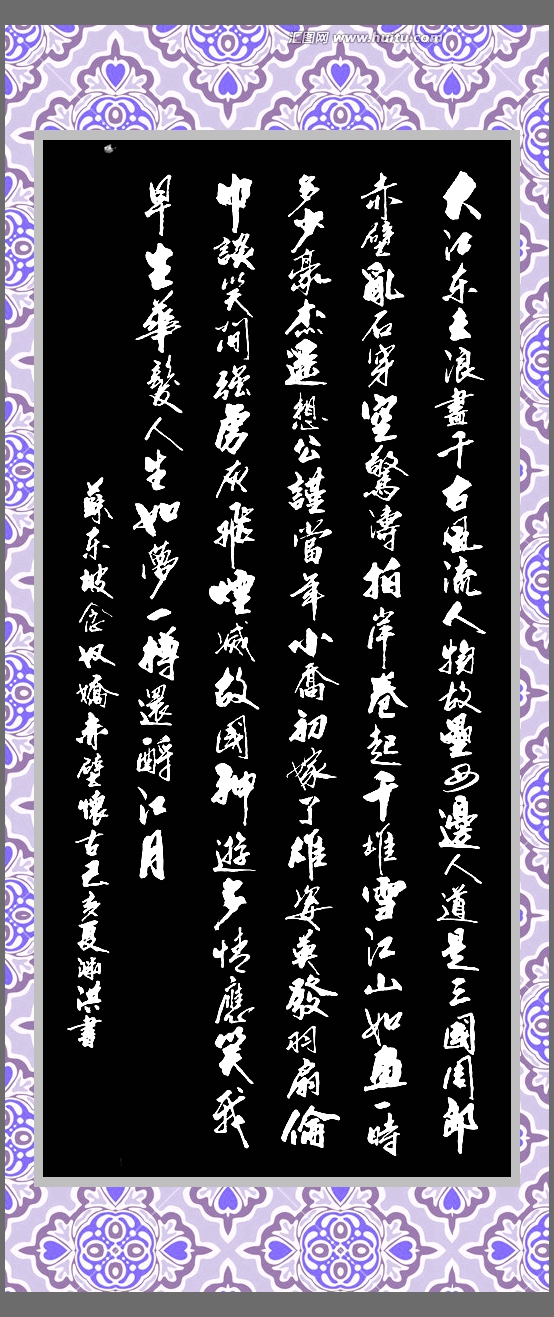 汇图网 www.huitu.com
大江东去浪盡千古風流人物故壘西邊人道是三國周郎
赤壁亂石穿空驚濤拍岸卷起千堆雪江山如畫一時
多少豪杰遥想公謹當年小喬初嫁了雄姿英發羽扇倫
巾談笑间强虏灰飛煙滅故國神遊多情應笑我
早生華髮人生如夢一樽還酹江月
蘇东坡念奴嬌赤壁懷古己亥夏瀚洪書